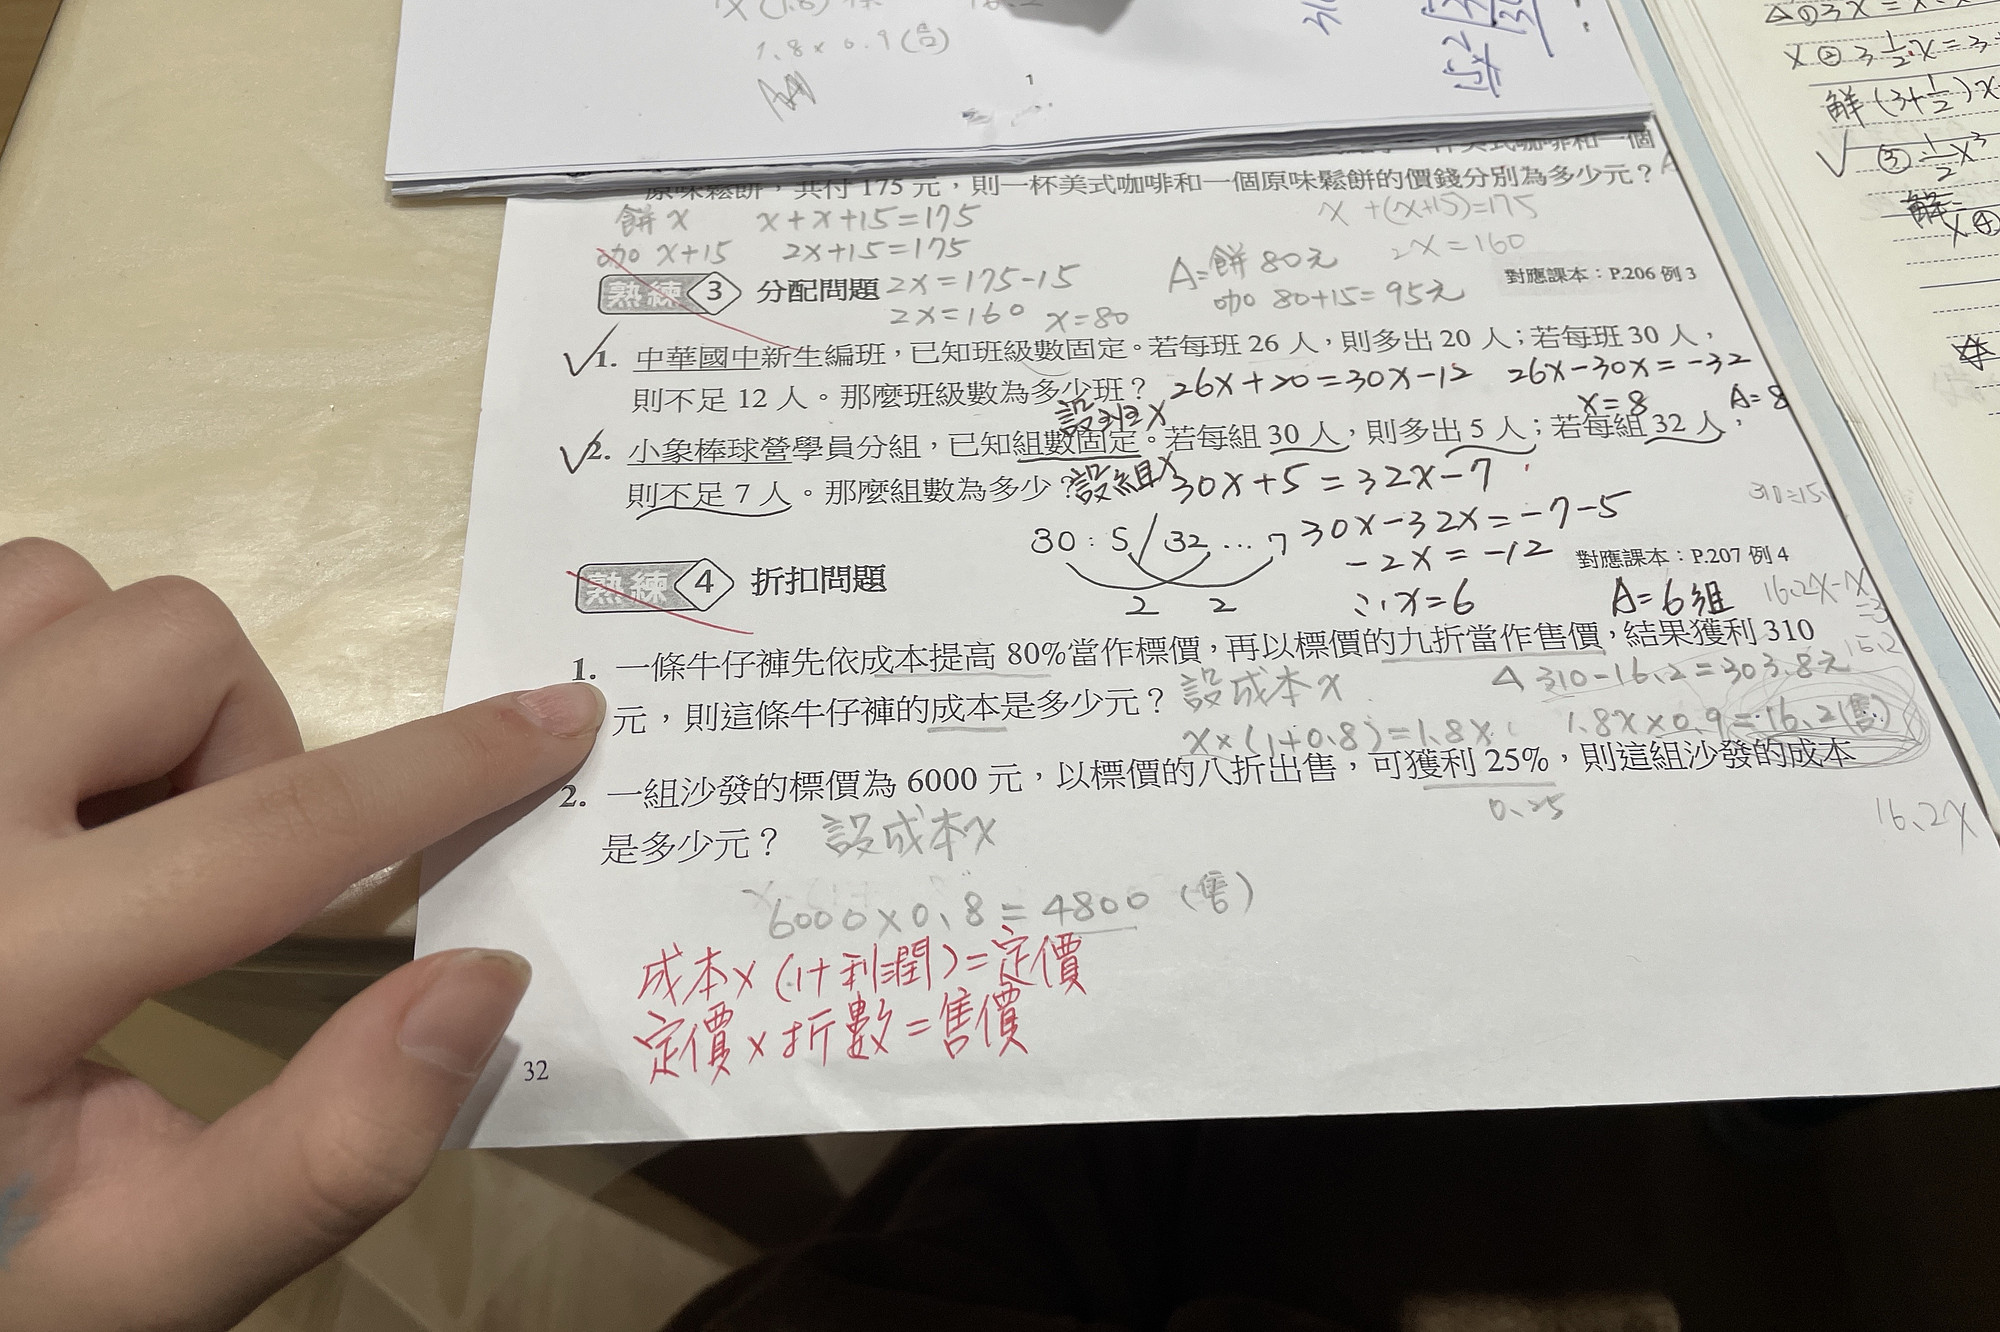 1.8×0.9(售)
1
原味鬆餅，共付 175 元，則一杯美式咖啡和一個原味鬆餅的價錢分別為多少元？
餅 x x+x+15=175
x+(x+15)=175
咖 x+15 2x+15=175
2x=160
熟練 3 分配問題 2x=175-15
A=餅 80元
對應課本：P.206 例 3
2x=160 x=80
咖 80+15=95元
1. 中華國中新生編班，已知班級數固定。若每班 26 人，則多出 20 人；若每班 30 人，
則不足 12 人。那麼班級數為多少班？ 26x+20=30x-12 26x-30x=-32
設班x x=8 A=8
2. 小象棒球營學員分組，已知組數固定。若每組 30 人，則多出 5 人；若每組 32 人，
則不足 7 人。那麼組數為多少？ 設組x 30x+5=32x-7
30:5/32...7 30x-32x=-7-5
-2x=-12
對應課本：P.207 例 4
熟練 4 折扣問題
2 2 ∴x=6 A=6組
1. 一條牛仔褲先依成本提高 80%當作標價，再以標價的九折當作售價，結果獲利 310
設成本x 310-16.2=303.8元
元，則這條牛仔褲的成本是多少元？
x×(1+0.8)=1.8x 1.8x×0.9=16.2(售)
2. 一組沙發的標價為 6000 元，以標價的八折出售，可獲利 25%，則這組沙發的成本
0.25
16.2x
是多少元？ 設成本x
6000×0.8=4800 (售)
成本×(1+利潤)=定價
定價×折數=售價
32